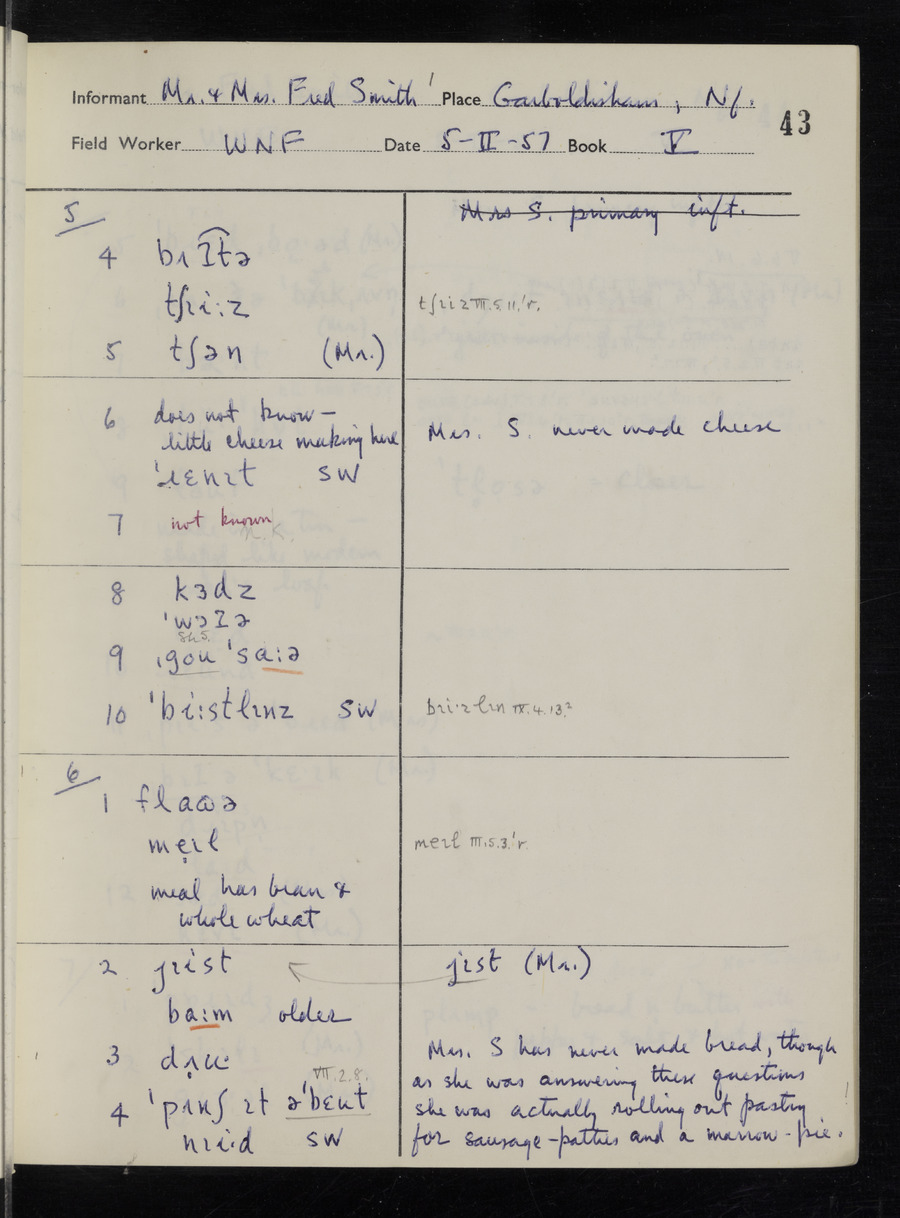 Informant Mr. & Mrs. Fred Smith Place Garboldisham, Nf.
43
Field Worker WNF Date 5-II-57 Book V
5
Mrs S. primary inft.
4 bʌʔtə
tʃɹi:z
tʃɹiz III.5.11.'r.
5 tʃən (Mr.)
6 does not know –
little cheese making here
Mrs. S. never made cheese
'ɹɛnɪt SW
7 not known
8 kɜdz
'wəʔə
9 ˌgou 'sa:ə
10 'bi:stlɪnz SW
III.4.13.2
6
1 flaɷə
mẹɪl
meɪl III.5.3.'r.
meal has bran &
whole wheat
2 jɪist
jɪst (Mr.)
ba:m older
3 dʌu·
Mrs. S has never made bread, though
as she was answering these questions
she was actually rolling out pastry
for sausage-patties and a marrow-pie.
VII.2.8.
4 'pʌʃ ɪt ə'bɛut
nɪi·d SW